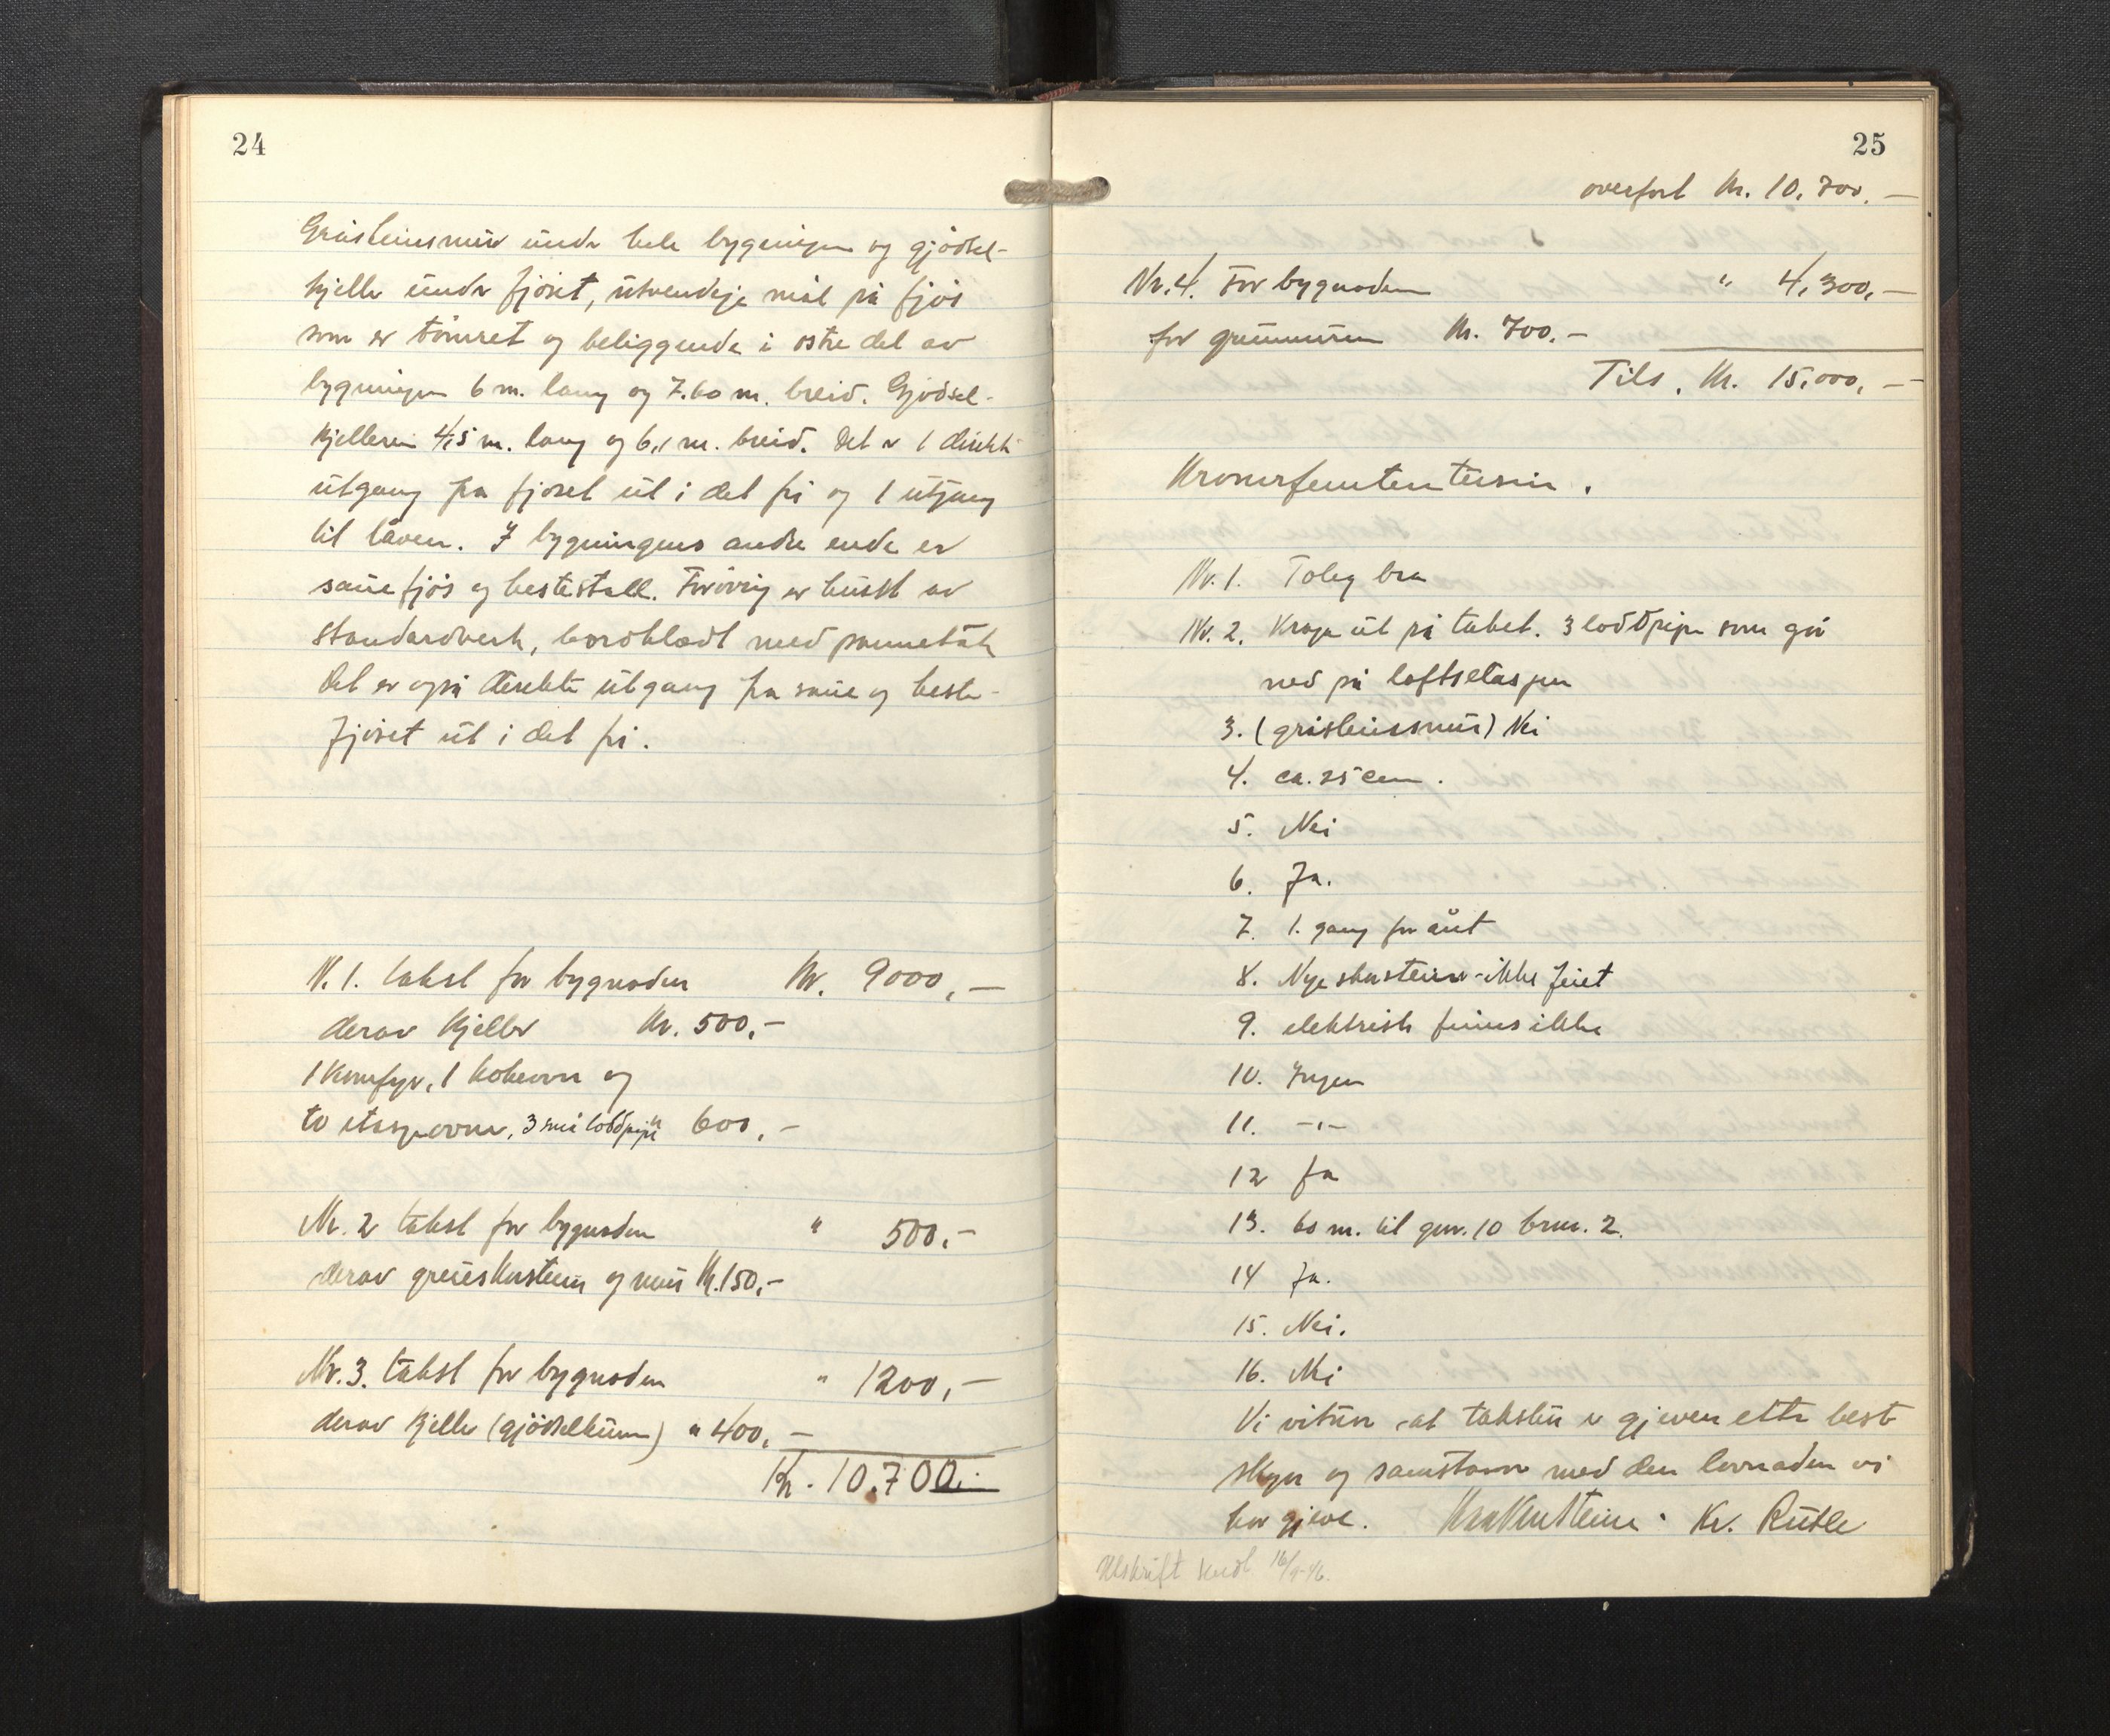 24
Gråsteinsmur under hele bygningen og gjødsel-
kjeller under fjøset, utvendige mål på fjøs
som er tømret og beliggende i østre del av
bygningen 6 m. lang og 7.60 m. breid. Gjødsel-
kjelleren 4,5 m. lang og 6,1 m. breid. Det er 1 direkte
utgang fra fjøset ut i det fri og 1 utgang
til låven. I bygningens andre ende er
sauefjøs og hestestall. Forøvrig er huset av
standardverk, bordkledt med pannetak
Det er også direkte utgang fra saue og heste-
fjøset ut i det fri.
N. 1. takst for bygnaden Kr. 9000,-
derav kjeller Kr. 500,-
1 komfyr, 1 kokeovn og
to etasjeovner, 3 små loddpiper " 600,-
Nr. 2 takst for bygnaden " 500,-
derav grueskorstein og mur Kr. 150,-
Nr. 3. takst for bygnaden " 1200,-
derav kjeller (gjødselkum) " 400,-
Kr. 10.700.-
25
overført Kr. 10.700.-
Nr. 4. For bygnaden " 4,300,-
for grunnmuren Kr. 700.-
Tils. Kr. 15.000,-
Kronerfemtentusin.
Nr. 1. Toleg bra
Nr. 2. Kraga ut på taket. 3 loddpiper som går
ned på loftsetasjen
3. (gråsteinsmur) Nei
4. ca. 25 cm.
5. Nei
6. Ja.
7. 1. gang for året
8. Nye skorsteiner - ikke feiet
9. elektrisk finnes ikke
10. Ingen
11. -"-
12 Ja
13. 60 m. til gnr. 10 brnr. 2.
14 Ja.
15. Nei.
16. Nei
Vi vitner at taksten er gjeven etter beste
skyn og samstavar med den lovnaden vi
har gjeve. Kr. Rutle
Utskrift sendt 16/9-46.